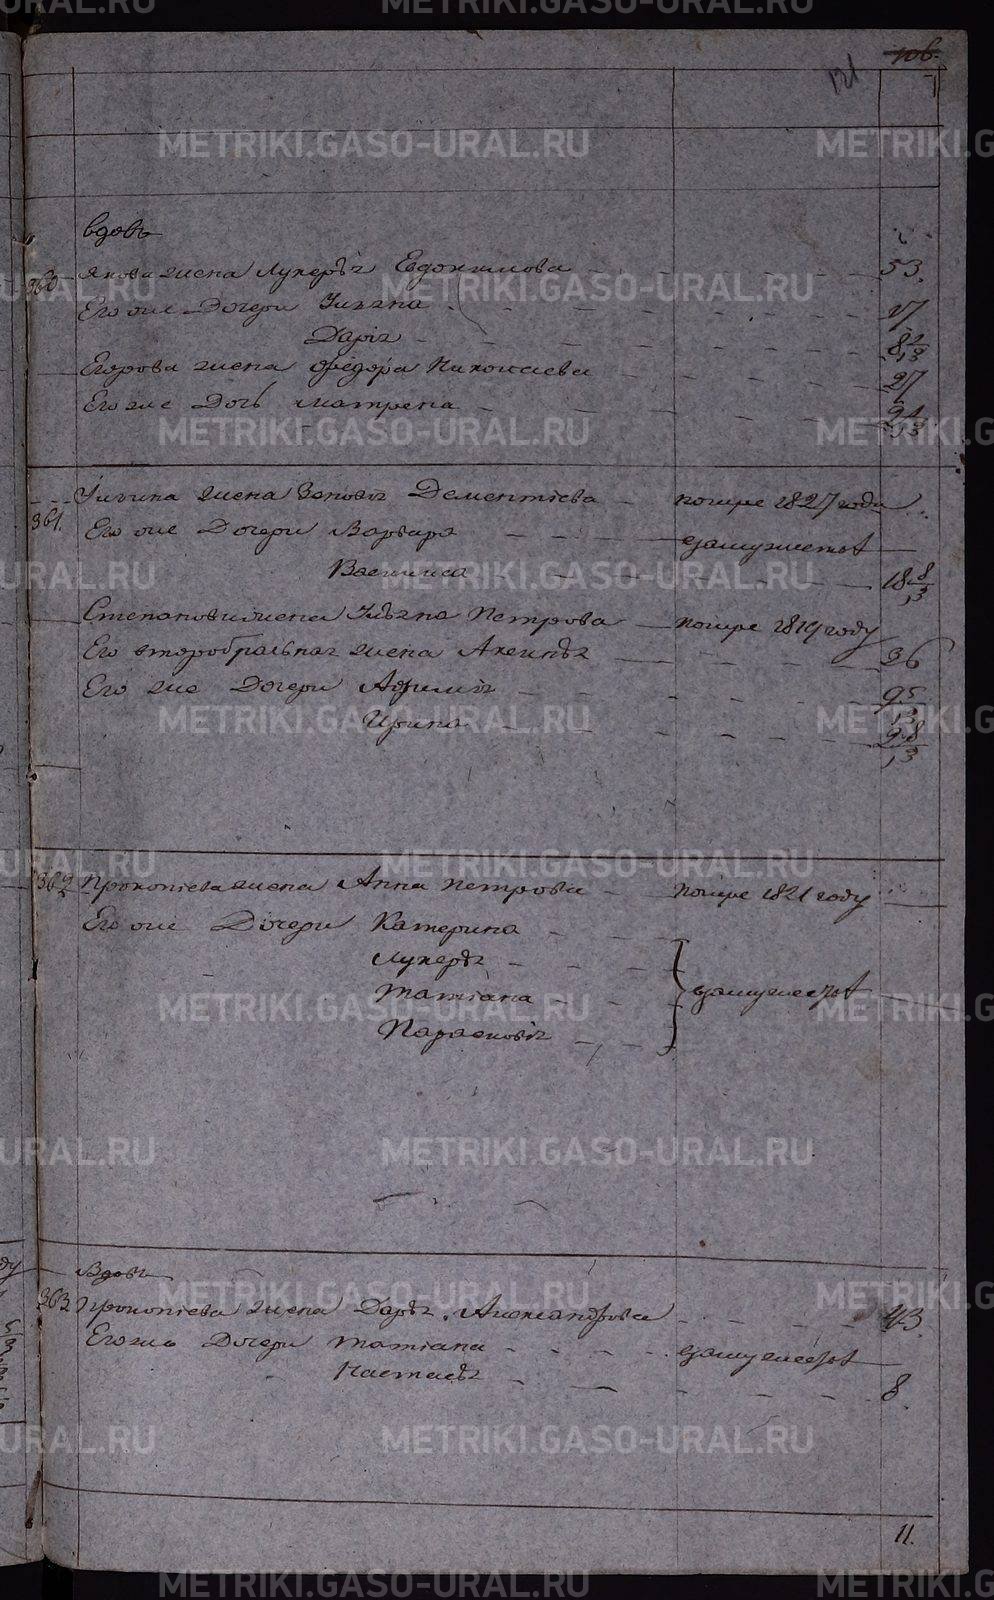 106.
121
вдовъ
360 Якова жена Лукерья Евдокимова 53.
Его же Дочери Ульяна 17
Дарья
Егорова жена Федора Николаева 27
Его же Дочь Матрена
361. Ильина жена Зеновія Дементіева помре 1827 года
Его же Дочери Варвара взамужестве
Василиса 18 8/13
Степанова жена Ульяна Петрова помре 1819 году
Его второбрачная жена Аксинья 36
Его же Дочери Афимья 9 5/13
Ирина 2 8/13
362 Прокопіева жена Анна Петрова помре 1821 году
Его же Дочери Катерина
Лукерья
Матіана взамужестве
Парасковія
Вдова
363 Прокопіева жена Дарья Александрова 43.
Его же Дочери Татіана взамужестве
Настасья 8.
11.
METRIKI.GASO-URAL.RU